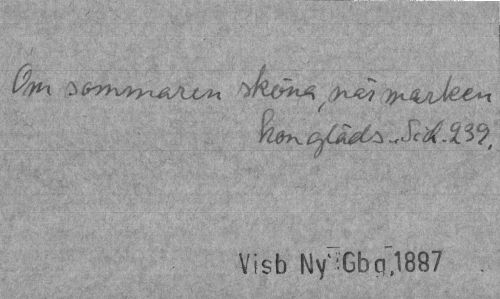 Om sommaren sköna, när marken
hon gläds. Sid. 239.
Visb Ny Gbg, 1887